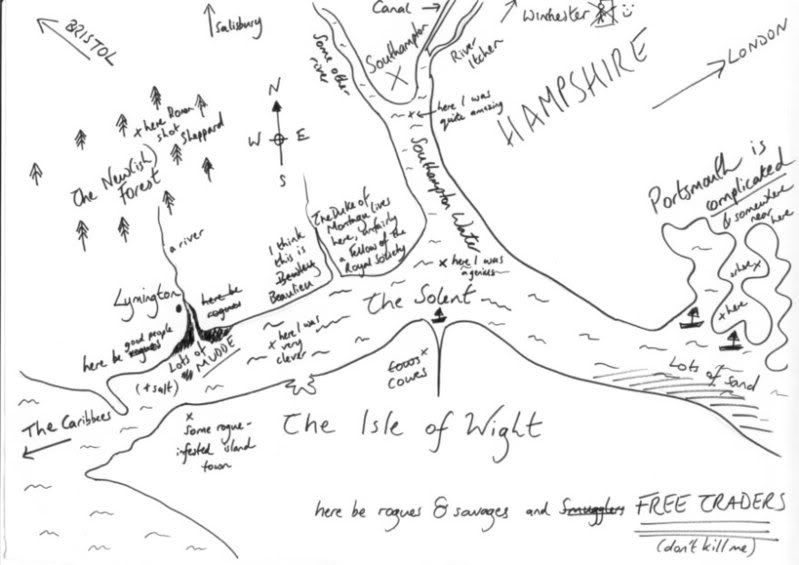 BRISTOL
Salisbury
Canal
Winchester
River
Itchen
Southampton
Some other
river
HAMPSHIRE
LONDON
here I was
quite amazing
here Rowan
shot
Sheppard
The New(ish)
Forest
N
W E
S
Southampton Water
Portsmouth is
complicated
& somewhere
near here
where
here
a river
I think
this is
Bewley
Beaulieu
The Duke of
Montagu lives
here, unfairly
a Fellow of the
Royal Society
here I was
a genius
Lymington
here be
rogues
The Solent
here be good people
rogues
Lots of
MUDDE
(+ salt)
here I was
very
clever
Cowes
Lots of Sand
The Caribbees
Some rogue-
infested island
town
The Isle of Wight
here be rogues & savages and Smugglers FREE TRADERS
(don't kill me)